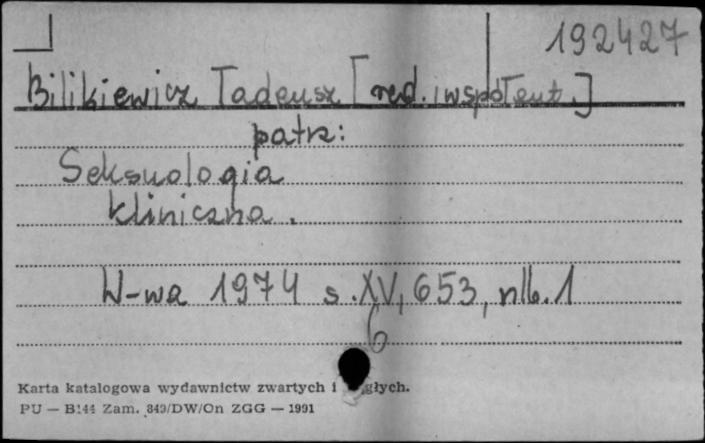 192427
Bilikiewicz Tadeusz [red. i współaut.]
patrz:
Seksuologia
kliniczna.
W-wa 1974 s. XV, 653, nlb. 1
6
Karta katalogowa wydawnictw zwartych i głych.
PU — B144 Zam. 849/DW/On ZGG — 1991